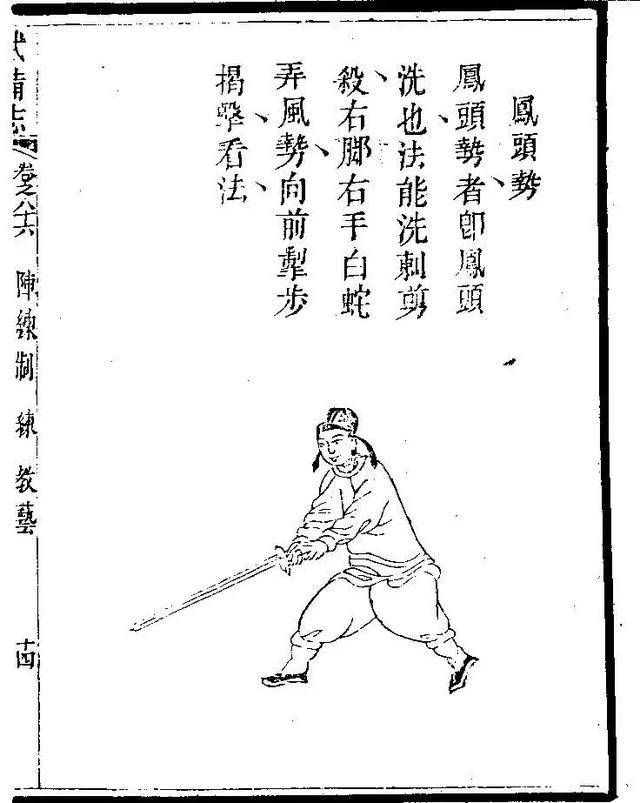 鳳頭勢
鳳頭勢者卽鳳頭
洗也法能洗刺剪
殺右脚右手白蛇
弄風勢向前掣步
揭擊看法
武備志 卷之八十六 陣練制 練 教藝 十四